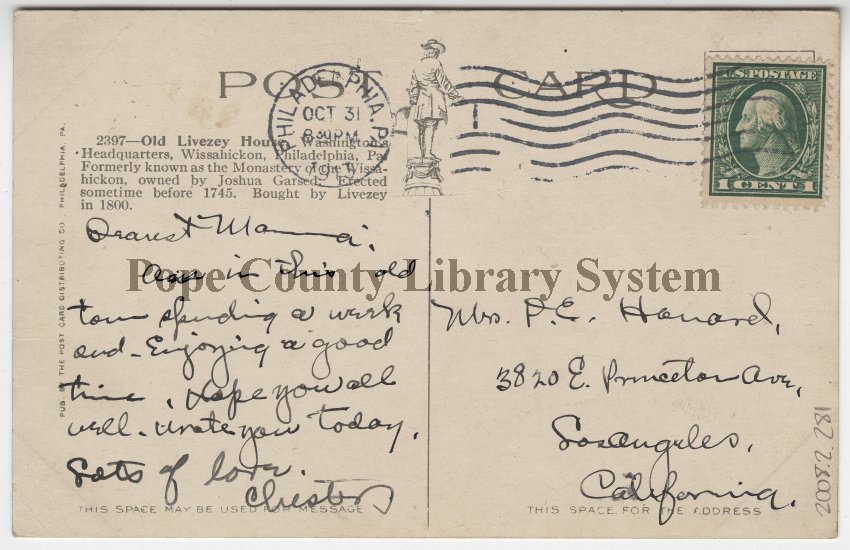 POST CARD
PHILADELPHIA, PA.
OCT 31
8 30 PM
U.S. POSTAGE
1 CENT 1
2397—Old Livezey House, Washington's
Headquarters, Wissahickon, Philadelphia, Pa.
Formerly known as the Monastery of the Wissa-
hickon, owned by Joshua Garsed. Erected
sometime before 1745. Bought by Livezey
in 1800.
PUB. BY THE POST CARD DISTRIBUTING CO. PHILADELPHIA, PA.
Dearest Mamma;
Am in this old
town spending a week
end - Enjoying a good
time. Hope you all
well - wrote you today.
Lots of love.
Chester
Pope County Library System
Mrs. P. E. Hanard,
3820 E. Princeton Ave,
Los Angeles,
California.
2008.2.281
THIS SPACE MAY BE USED FOR MESSAGE
THIS SPACE FOR THE ADDRESS